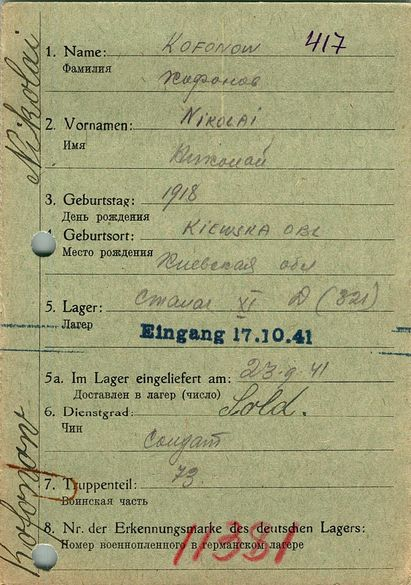 Nikolai
1. Name: KOFONOW 417
Фамилия
Хофонов
2. Vornamen: NIKOLAI
Имя
Николай
3. Geburtstag: 1918
День рождения
4. Geburtsort: KIEWSKA OBL
Место рождения
Киевская обл
5. Lager: Сталаг XI D (321)
Лагер
Eingang 17.10.41
5a. Im Lager eingeliefert am: 23.9.41
Доставлен в лагер (число)
6. Dienstgrad: Sold.
Чин
Солдат
7. Truppenteil: 73
Воинская часть
8. Nr. der Erkennungsmarke des deutschen Lagers:
Номер военнопленного в германском лагере
11391
Kofonow